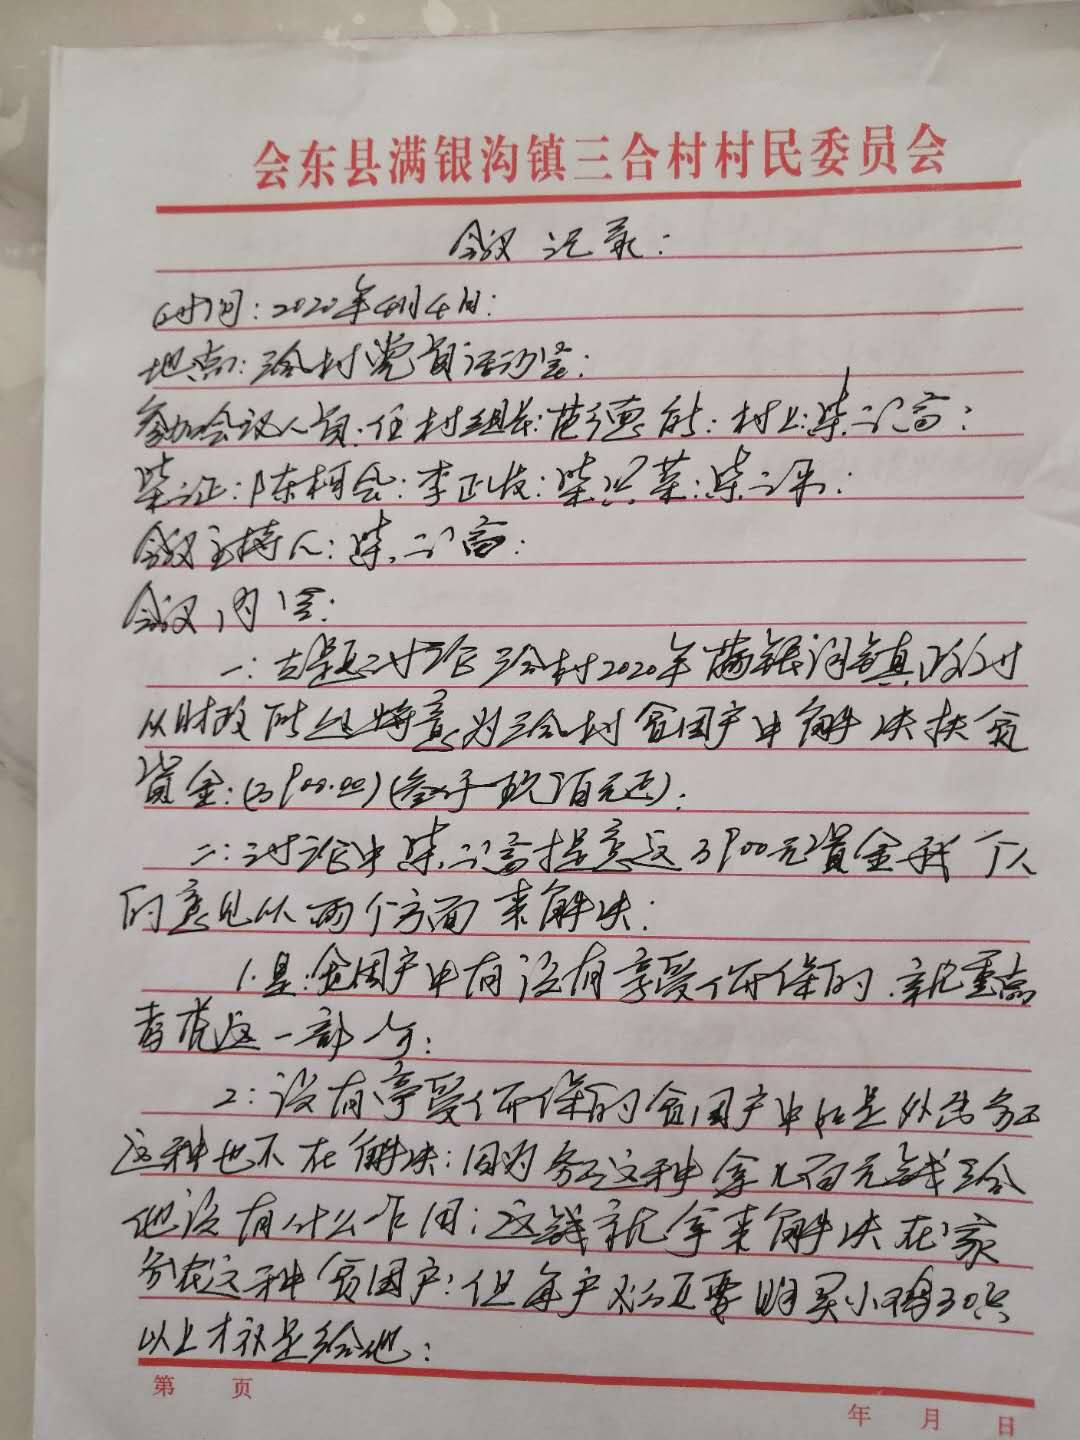 会东县满银沟镇三合村村民委员会
会议记录:
时间:2020年4月4日:
地点:三合村党员活动室:
参加会议人员:任村组长:范德能:村上:柴门高:
柴正:陈柯会:李正发:柴兴菜:柴
会议主持人:柴门高:
会议内容:
一:主题讨论三合村2020年满银沟镇政府
从财政所特意为三合村贫困户中解决扶贫
资金:(3900.00)(叁千玖佰元正):
二:讨论中柴门高提意这3900元资金我个人
的意见从两个方面来解决:
1.是:贫困户中有没有享受低保的.就重点
考虑这一部分:
2:没有享受低保的贫困户中如是外出务工
这种也不在解决:因为务工这种拿几百元钱给
他没有什么作用:这钱就拿来解决在家
务农这种贫困户:但每户必须要购买小鸡30只
以上才补足给他:
第 页
年 月 日